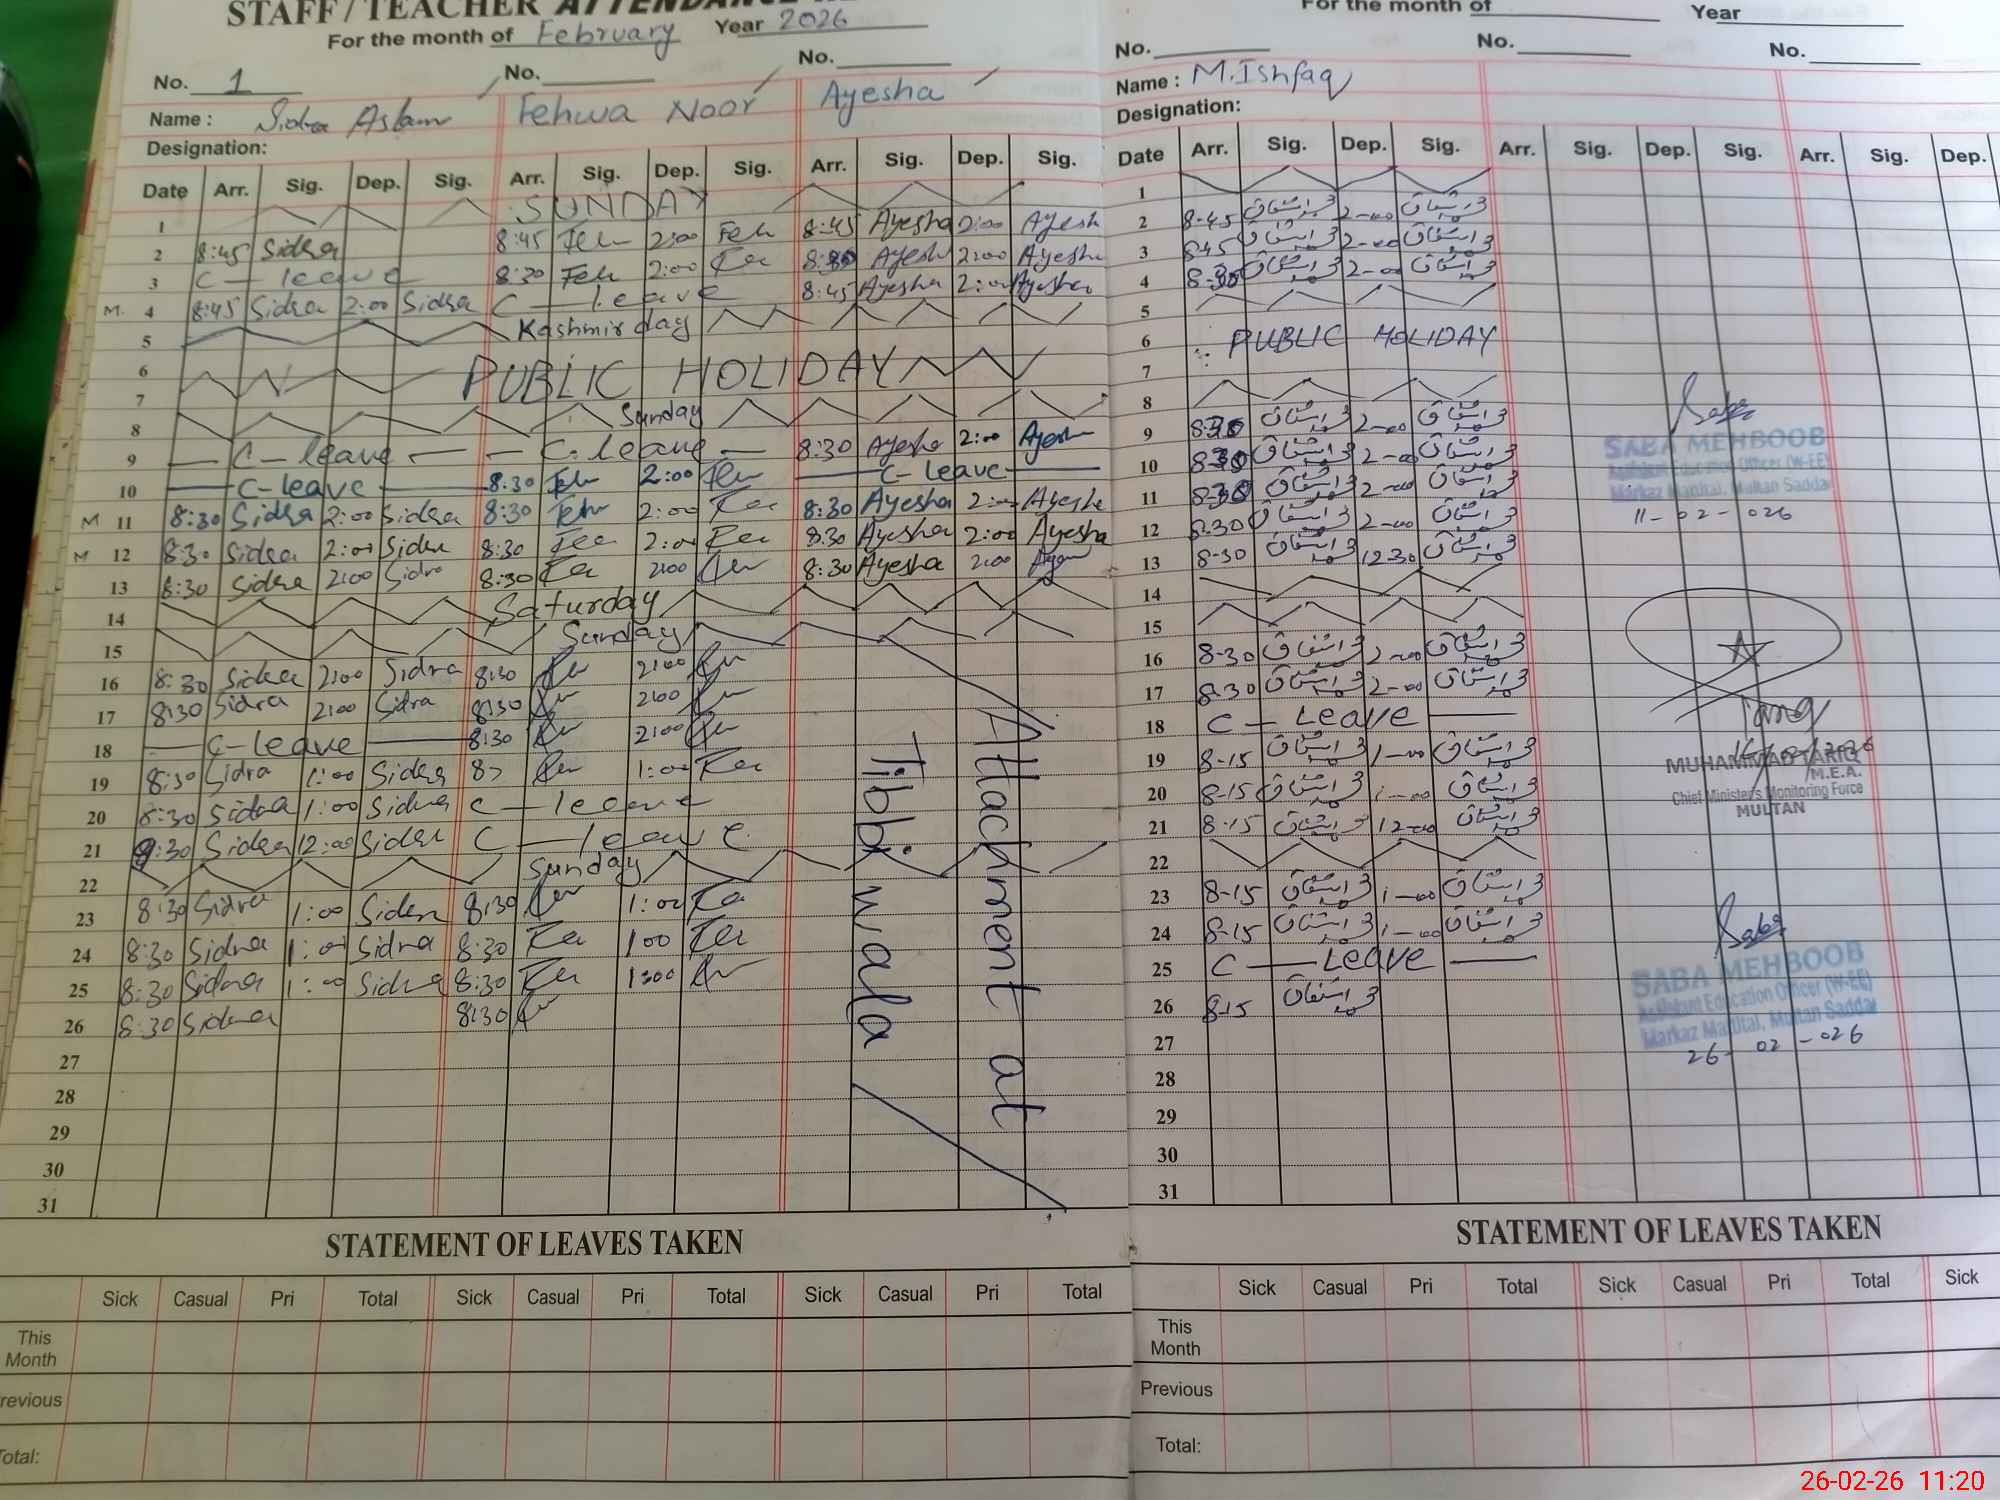 STAFF / TEACHER ATTENDANCE
For the month of February Year 2026
No. 1 No. No.
Name : Sidra Aslam Fehwa Noor Ayesha
Designation:
Date Arr. Sig. Dep. Sig. Arr. Sig. Dep. Sig. Arr. Sig. Dep. Sig.
1 SUNDAY
2 8:45 Sidra 8:45 Feh 2:00 Feh 8:45 Ayesha 2:00 Ayesh
3 C - leave 8:30 Feh 2:00 8:30 Ayesh 2:00 Ayesha
M. 4 8:45 Sidra 2:00 Sidra C - leave 8:45 Ayesha 2:00 Ayesha
5 Kashmir day
6 PUBLIC HOLIDAY
7
8 Sunday
9 C - leave C. leave 8:30 Ayesha 2:00 Ayesha
10 C - leave 8:30 Feh 2:00 C - leave
M 11 8:30 Sidra 2:00 Sidra 8:30 Feh 2:00 8:30 Ayesha 2:00 Ayesha
M 12 8:30 Sidra 2:00 Sidra 8:30 2:00 8:30 Ayesha 2:00 Ayesha
13 8:30 Sidra 2:00 Sidra 8:30 2:00 8:30 Ayesha 2:00
14 Saturday
15 Sunday
16 8:30 Sidra 2:00 Sidra 8:30 2:00
17 8:30 Sidra 2:00 Sidra 8:30 2:00
18 C - leave 8:30 2:00
19 8:30 Sidra 1:00 Sidra 1:00
20 8:30 Sidra 1:00 Sidra C - leave
21 Sidra 12:00 Sidra C - leave
22 Sunday
23 8:30 Sidra 1:00 Sidra 8:30 1:00
24 8:30 Sidra 1:00 Sidra 8:30 1:00
25 8:30 Sidra 1:00 Sidra 8:30 1:00
26 8:30 Sidra 8:30
27
28
29
30
31
Attachment at
Tibbi wala
STATEMENT OF LEAVES TAKEN
Sick Casual Pri Total Sick Casual Pri Total Sick Casual Pri Total
This Month
revious
otal:
For the month of Year
No. No. No.
Name : M. Ishfaq
Designation:
Date Arr. Sig. Dep. Sig. Arr. Sig. Dep. Sig. Arr. Sig. Dep.
1
2 8-45 محمد اشفاق 2-00 محمد اشفاق
3 8-45 محمد اشفاق 2-00 محمد اشفاق
4 8-30 محمد اشفاق 2-00 محمد اشفاق
5
6 PUBLIC HOLIDAY
7
8
9 8-30 محمد اشفاق 2-00 محمد اشفاق
10 8-30 محمد اشفاق 2-00 محمد اشفاق
11 8-30 محمد اشفاق 2-00 محمد اشفاق
12 8-30 محمد اشفاق 2-00 محمد اشفاق
13 8-30 محمد اشفاق 12-30 محمد اشفاق
14
15
16 8-30 محمد اشفاق 2-00 محمد اشفاق
17 8-30 محمد اشفاق 2-00 محمد اشفاق
18 C - Leave
19 8-15 محمد اشفاق 1-00 محمد اشفاق
20 8-15 محمد اشفاق 1-00 محمد اشفاق
21 8-15 محمد اشفاق 12-00 محمد اشفاق
22
23 8-15 محمد اشفاق 1-00 محمد اشفاق
24 8-15 محمد اشفاق 1-00 محمد اشفاق
25 C - Leave
26 8-15 محمد اشفاق
27
28
29
30
31
Saba
SABA MEHBOOB
Assistant Education Officer (W-EE)
Markaz Manital, Multan Saddar
11-02-026
Tariq
MUHAMMAD TARIQ
M.E.A.
Chief Minister's Monitoring Force
MULTAN
Saba
SABA MEHBOOB
Assistant Education Officer (W-EE)
Markaz Manital, Multan Saddar
26-02-026
STATEMENT OF LEAVES TAKEN
Sick Casual Pri Total Sick Casual Pri Total Sick
This Month
Previous
Total:
26-02-26 11:20